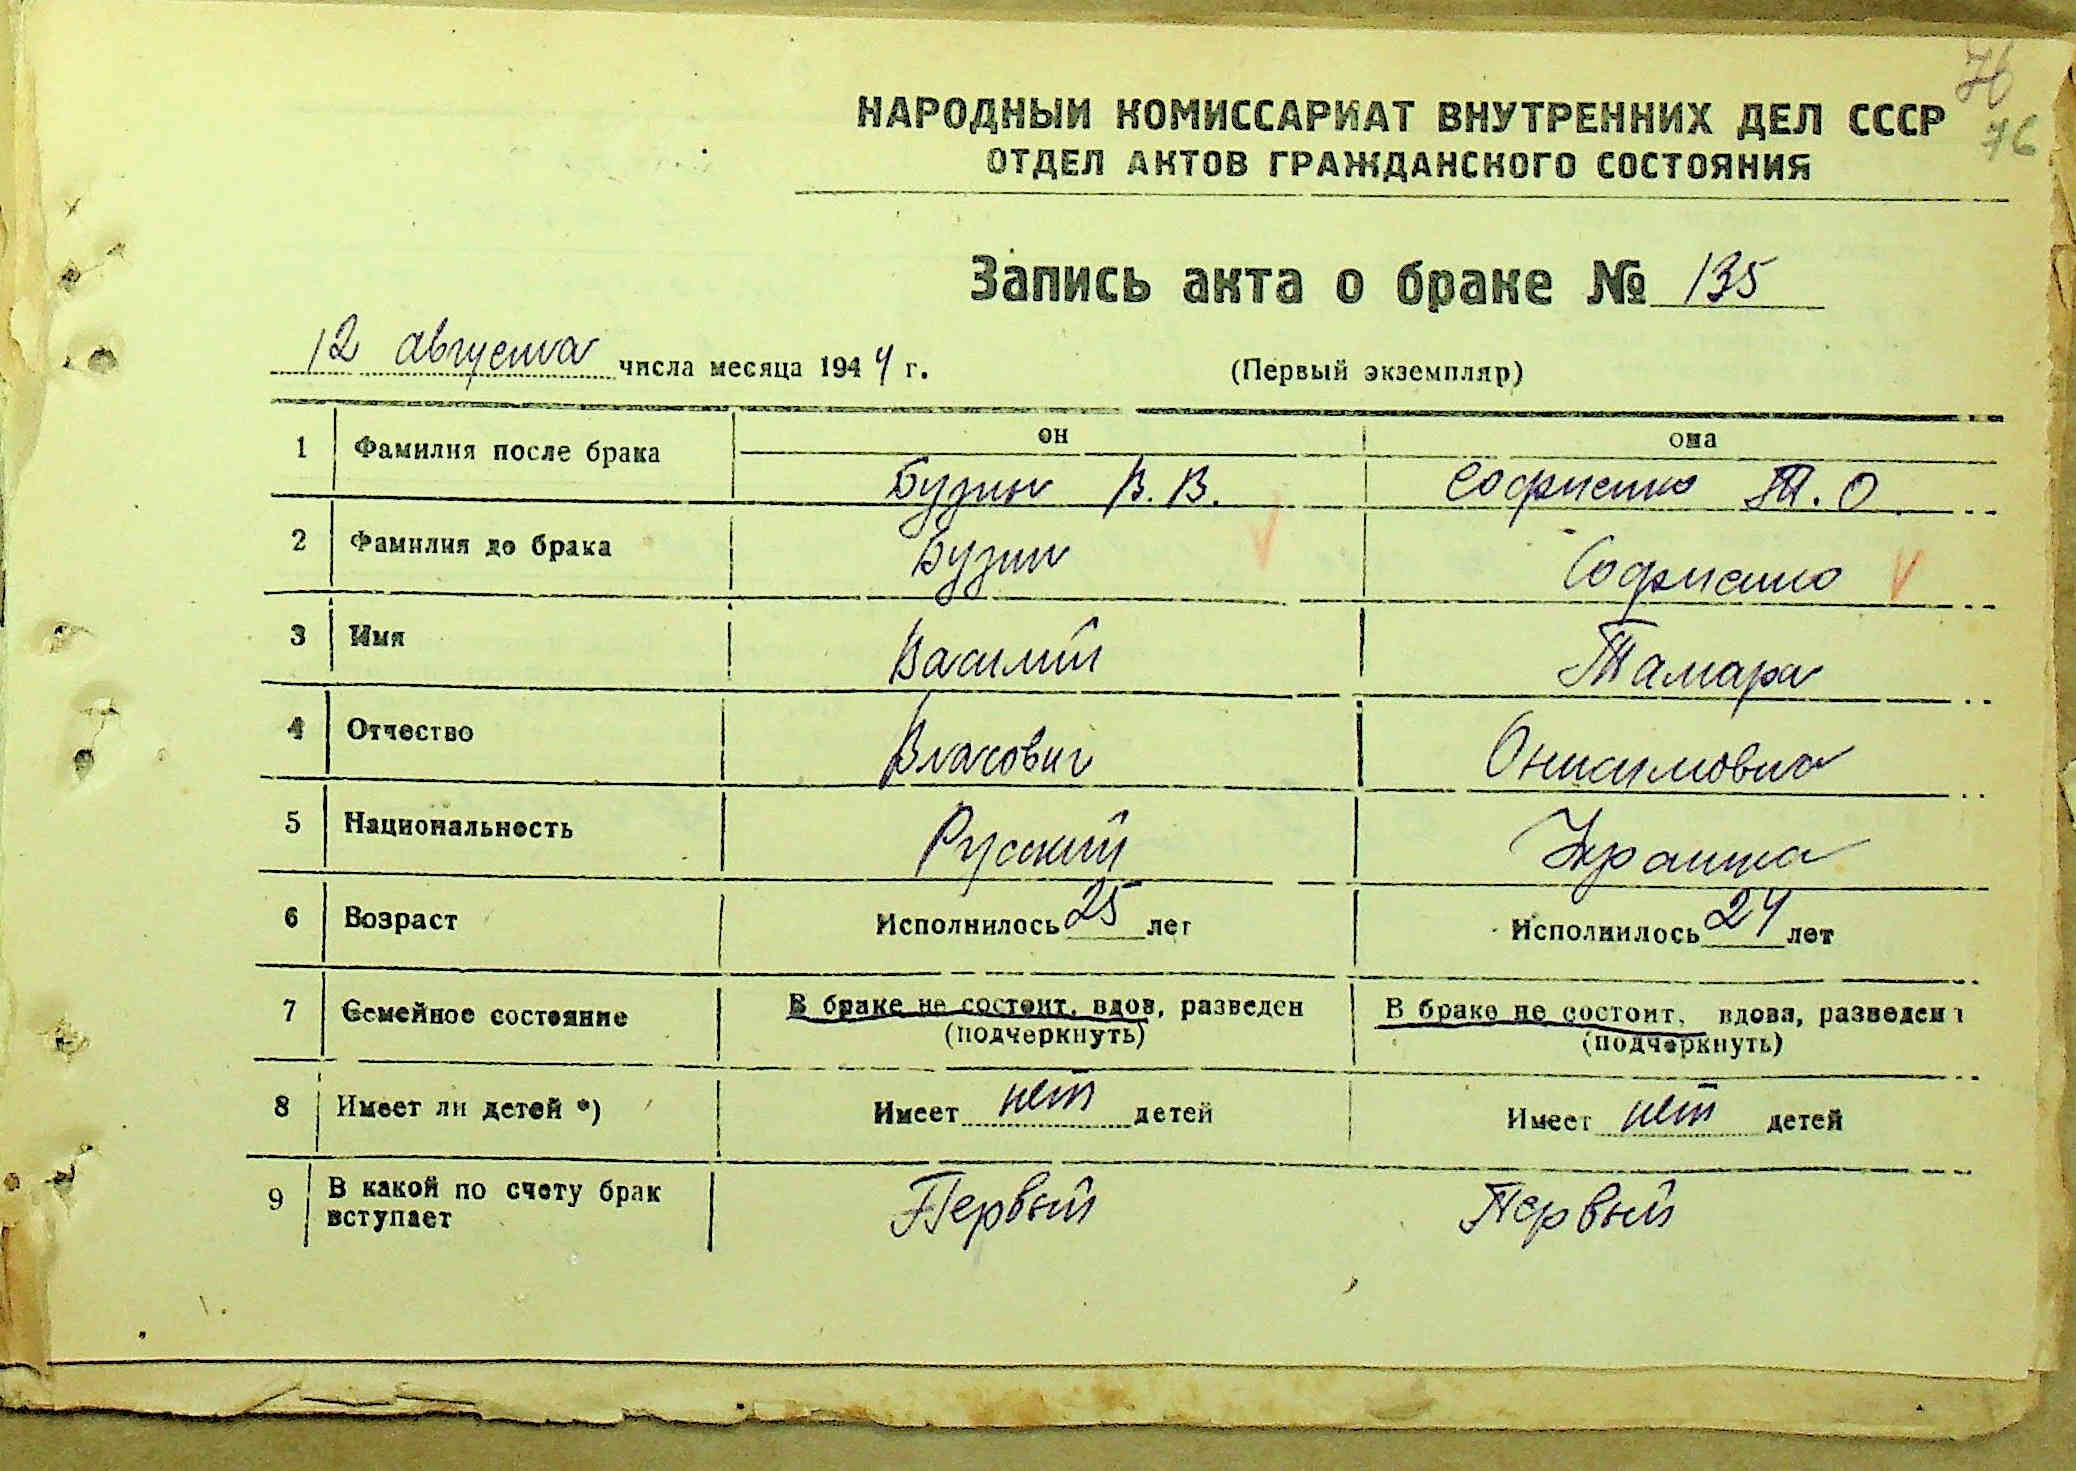 76
НАРОДНЫЙ КОМИССАРИАТ ВНУТРЕННИХ ДЕЛ СССР
76
ОТДЕЛ АКТОВ ГРАЖДАНСКОГО СОСТОЯНИЯ
Запись акта о браке № 135
12 августа числа месяца 1944 г. (Первый экземпляр)
он она
1 Фамилия после брака Бузин В. В. Софиенко Т. О
2 Фамилия до брака Бузин Софиенко
3 Имя Василий Тамара
4 Отчество Власович Онисимовна
5 Национальность Русский Украинка
6 Возраст Исполнилось 25 лет Исполнилось 24 лет
7 Семейное состояние В браке не состоит, вдов, разведен В браке не состоит, вдова, разведен
(подчеркнуть) (подчеркнуть)
8 Имеет ли детей *) Имеет нет детей Имеет нет детей
9 В какой по счету брак Первый Первый
вступает